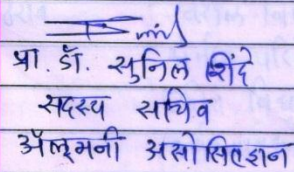 प्रा. डॉ. सुनिल शिंदे
सदस्य सचिव
ॲल्युमनी असोसिएशन